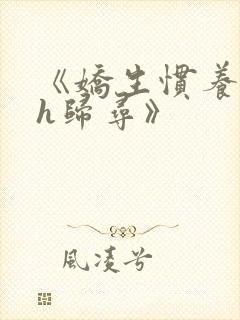 《嬌生慣養
h歸尋》
風凌兮